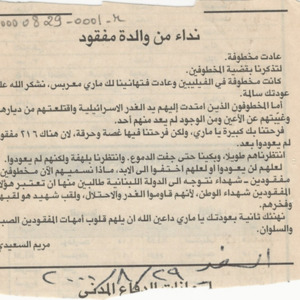 0000829-0001-R
نداء من والدة مفقود
عادت مخطوفة.
لتذكرنا بقضية المخطوفين.
كانت مخطوفة في الفيليبين وعادت فتهانينا لك ماري معربس، نشكر الله على
عودتك سالمة.
أما المخطوفون الذين امتدت إليهم يد الغدر الاسرائيلية واقتلعتهم من ديارهم
وغيبتهم عن الأعين ومن الوجود لم يعد منهم أحد.
فرحتنا بك كبيرة يا ماري، ولكن فرحتنا فيها غصة وحرقة، لان هناك ٢١٦ مفقو
لم يعودوا بعد.
انتظرناهم طويلا، وبكينا حتى جفت الدموع. وانتظرنا بلهفة ولكنهم لم يعودوا.
لم يعودوا أو لعلهم لعلهم اختفوا الى الابد. فماذا نسميهم الآن مخطوفين
مفقودين - شهداء نتوجه الى الدولة اللبنانية طالبين منها ان تعتبر هؤلاء
المفقودين شهداء الوطن، لأنهم قاوموا الغدر والاحتلال، ولقب شهيد هو لقبهم
وفخرهم.
نهنئك ثانية بعودتك يا ماري داعين الله ان يلهم قلوب أمهات المفقودين الصبر
والسلوان.
مريم السعيدي
السفير
٢٠٠٠/٨/٢٩
الدفاع المدني